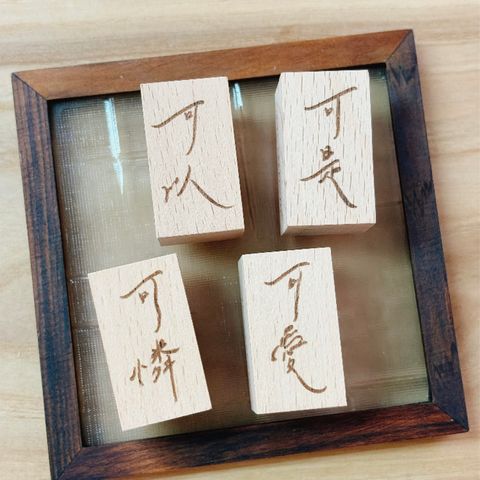 可以
可是
可憐
可愛